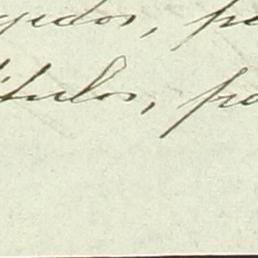 gidos, pa
títulos, pa